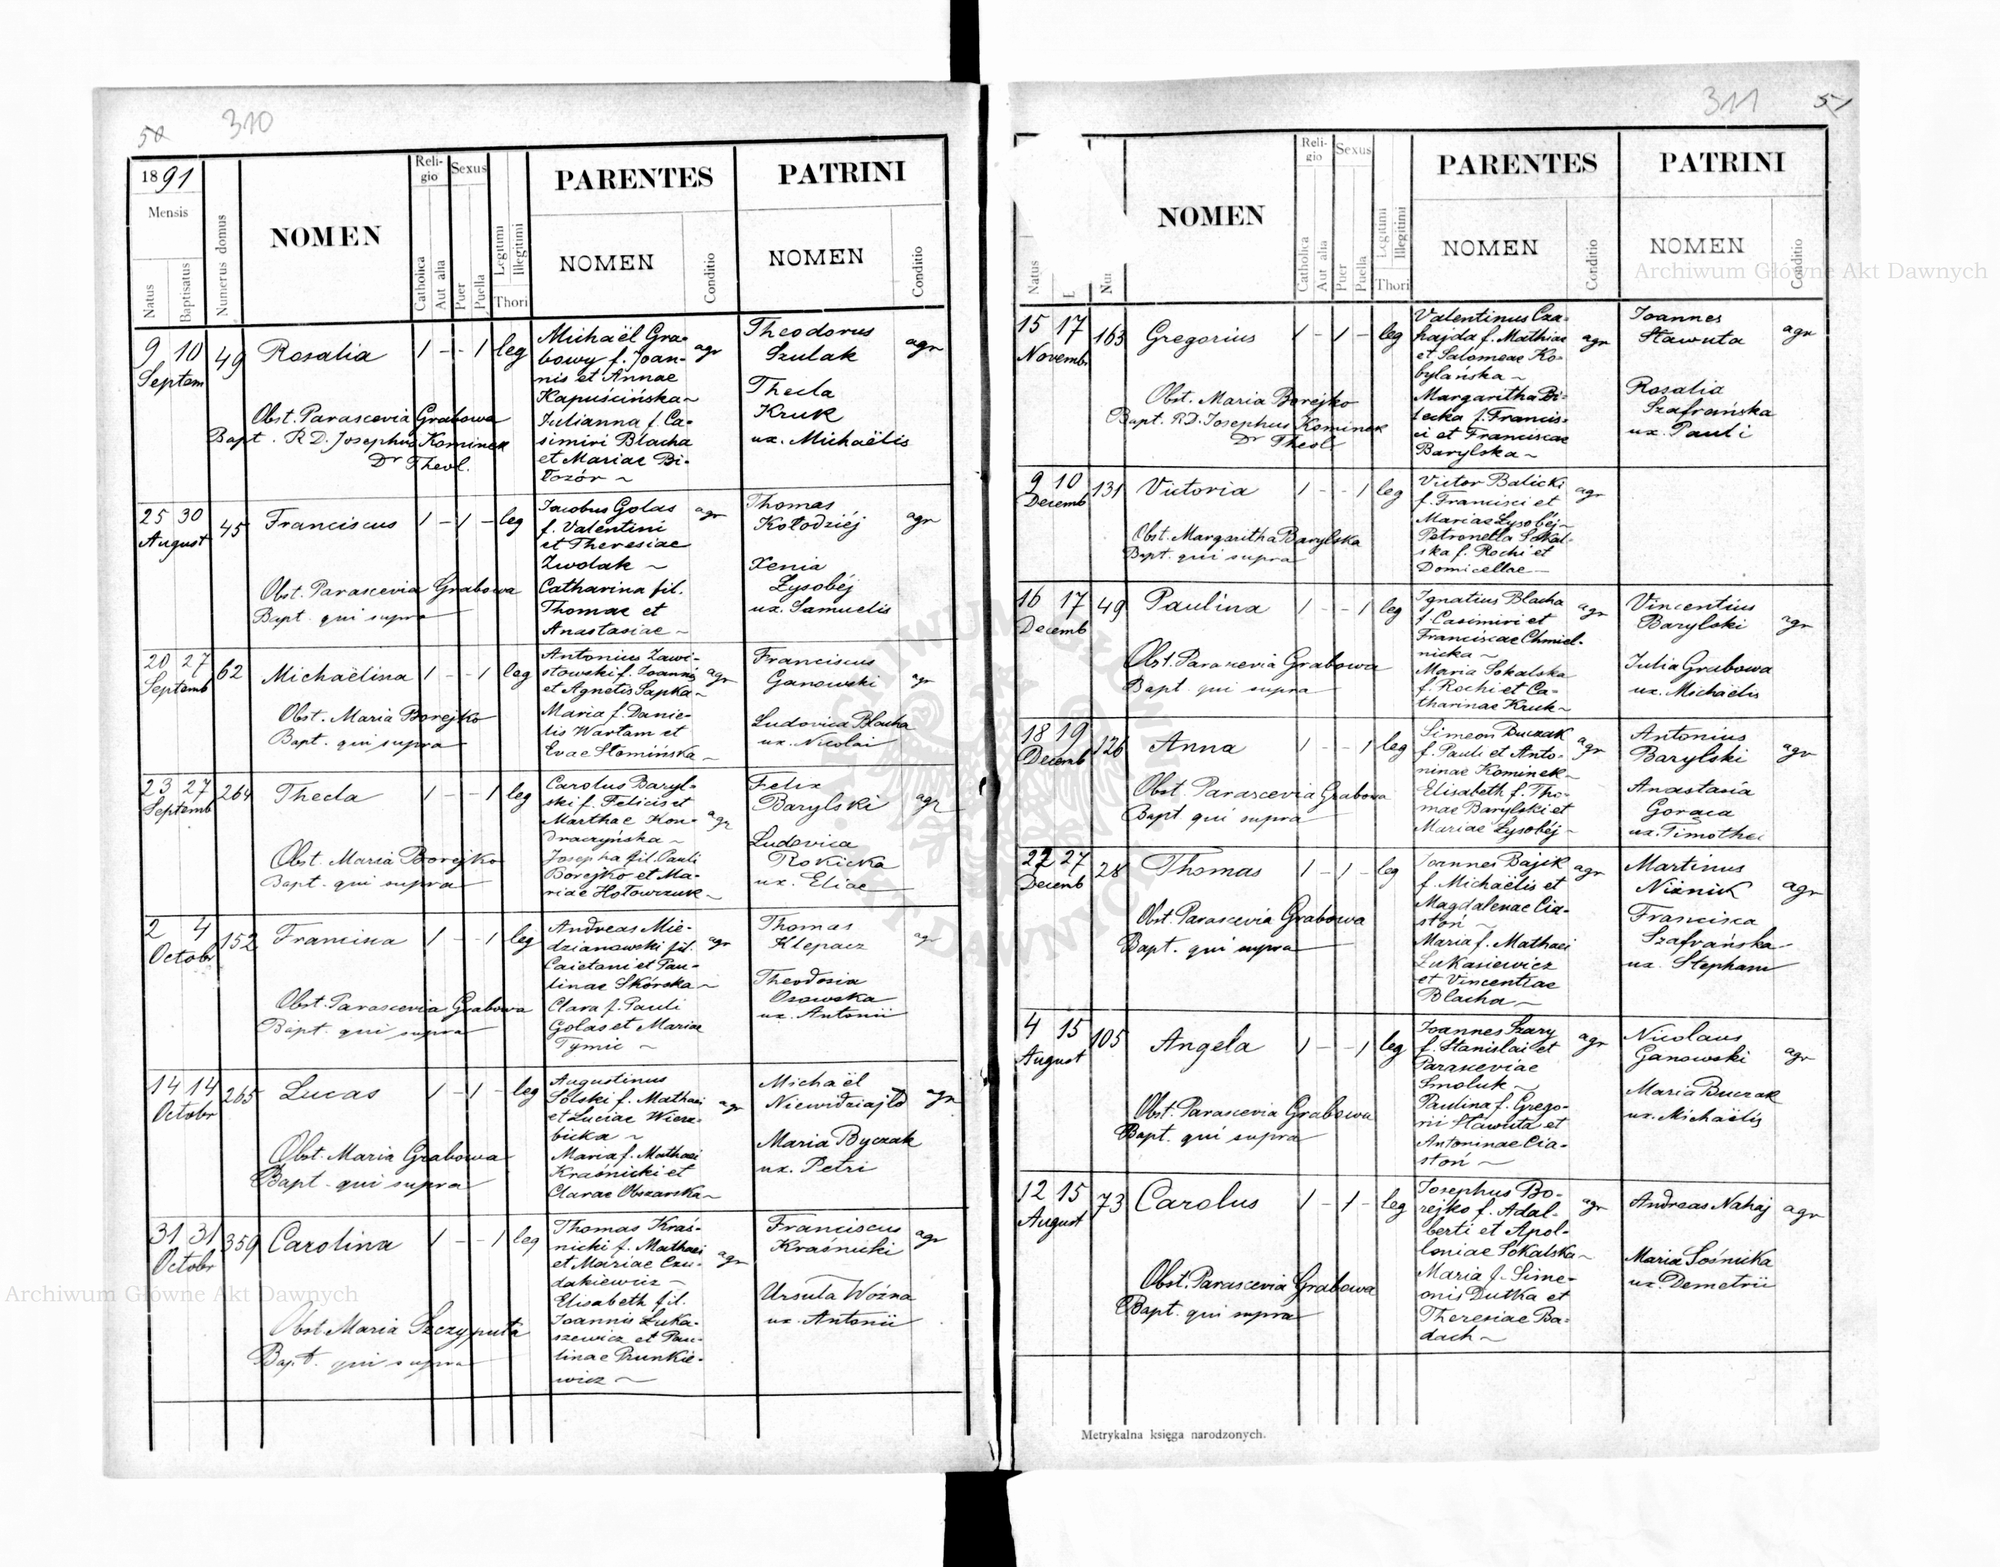 50 310
1891
Mensis
Natus
Baptisatus
Numerus domus
NOMEN
Religio
Catholica
Aut alia
Sexus
Puer
Puella
Legitimi
Illegitimi
Thori
PARENTES
NOMEN
Conditio
PATRINI
NOMEN
Conditio
9 10 Septem 49 Rosalia 1 - - 1 leg
Obst. Parascevia Grabowa
Bapt. R.D. Josephus Kominek
Dr Theol.
Michaël Gra-
bowy f. Joan-
nis et Annae
Kapuścińska ~
Julianna f. Ca-
simiri Blacha
et Mariae Bi-
łozór ~
agr
Theodorus
Szulak
Thecla
Kruk
ux. Michaëlis
agr
25 30 August 45 Franciscus 1 - 1 - leg
Obst. Parascevia Grabowa
Bapt. qui supra
Jacobus Golas
f. Valentini
et Theresiae
Zwolak ~
Catharina fil.
Thomae et
Anastasiae ~
agr
Thomas
Kołodziéj
Xenia
Łysobéj
ux. Samuelis
agr
20 27 Septemb 62 Michaëlina 1 - - 1 leg
Obst. Maria Borejko
Bapt. qui supra
Antonius Zawi-
stowski f. Joannis
et Agnetis Sapka ~
Maria f. Danie-
lis Wartam et
Evae Słomińska ~
agr
Franciscus
Ganowski
Ludovica Blacha
ux. Nicolai
agr
23 27 Septemb 264 Thecla 1 - - 1 leg
Obst. Maria Borejko
Bapt. qui supra
Carolus Baryl-
ski f. Felicis et
Marthae Kon-
draczyńska ~
Josepha fil. Pauli
Borejko et Ma-
riae Hołowczuk ~
agr
Felix
Barylski
Ludovica
Rokicka
ux. Eliae
agr
2 4 Octobr 152 Francina 1 - - 1 leg
Obst. Parascevia Grabowa
Bapt. qui supra
Andreas Mie-
dzianowski fil.
Caietani et Pau-
linae Skórska ~
Clara f. Pauli
Golas et Mariae
Tymic ~
agr
Thomas
Klepacz
Theodosia
Osowska
ux. Antonii
agr
14 14 Octobr 265 Lucas 1 - 1 - leg
Obst. Maria Grabowa
Bapt. qui supra
Augustinus
Solski f. Mathaei
et Luciae Wierz-
bicka ~
Maria f. Mathaei
Kraśnicki et
Clarae Obszarska ~
agr
Michaël
Niewidziajło
Maria Byczak
ux. Petri
agr
31 31 Octobr 359 Carolina 1 - - 1 leg
Obst. Maria Szczyputa
Bapt. qui supra
Thomas Kraś-
nicki f. Mathaei
et Mariae Czu-
dakiewicz ~
Elisabeth fil.
Joannis Łuka-
szewicz et Pau-
linae Prunkie-
wicz ~
agr
Franciscus
Kraśnicki
Ursula Woźna
ux. Antonii
agr
311 51
Natus
NOMEN
Religio
Catholica
Aut alia
Sexus
Puer
Puella
Legitimi
Illegitimi
Thori
PARENTES
NOMEN
Conditio
PATRINI
NOMEN
Conditio
15 17 Novemb 163 Gregorius 1 - 1 - leg
Obst. Maria Borejko
Bapt. R.D. Josephus Kominek
Dr Theol
Valentinus Cza-
hajda f. Mathiae
et Salomeae Ko-
bylańska ~
Margaritha Bi-
lecka f. Francis-
ci et Franciscae
Barylska ~
agr
Joannes
Stawuta
Rosalia
Szafrańska
ux. Pauli
agr
9 10 Decemb 131 Victoria 1 - - 1 leg
Obst. Margaritha Barylska
Bapt. qui supra
Victor Balicki
f. Francisci et
Mariae Łysobéj ~
Petronella Sokal-
ska f. Rochi et
Domicellae ~
agr
16 17 Decemb 49 Paulina 1 - - 1 leg
Obst. Parascevia Grabowa
Bapt. qui supra
Ignatius Blacha
f. Casimiri et
Franciscae Chmiel-
nicka ~
Maria Sokalska
f. Rochi et Ca-
tharinae Kruk ~
agr
Vincentius
Barylski
Julia Grabowa
ux. Michaëlis
agr
18 19 Decemb 126 Anna 1 - - 1 leg
Obst. Parascevia Grabowa
Bapt qui supra
Simeon Buczak
f. Pauli et Anto-
ninae Kominek ~
Elisabeth f. Tho-
mae Barylski et
Mariae Łysobéj ~
agr
Antonius
Barylski
Anastasia
Goraca
ux. Timothei
agr
22 27 Decemb 28 Thomas 1 - 1 - leg
Obst. Parascevia Grabowa
Bapt. qui supra
Joannes Bajik
f. Michaëlis et
Magdalenae Cia-
stoń ~
Maria f. Mathaei
Łukasiewicz
et Vincentiae
Blacha ~
agr
Martinus
Niżnik
Francisca
Szafrańska
ux. Stephani
agr
4 15 August 105 Angela 1 - - 1 leg
Obst. Parascevia Grabowa
Bapt. qui supra
Joannes Szary
f. Stanislai et
Parasceviae
Smoluk ~
Paulina f. Grego-
rii Stawuta et
Antoninae Cia-
stoń ~
agr
Nicolaus
Ganowski
Maria Buczak
ux. Michaëlis
agr
12 15 August 73 Carolus 1 - 1 - leg
Obst. Parascevia Grabowa
Bapt. qui supra
Josephus Bo-
rejko f. Adal-
berti et Apol-
loniae Sokalska ~
Maria f. Sime-
onis Dutka et
Theresiae Ba-
dach ~
agr
Andreas Nahaj
Maria Sośnicka
ux. Demetrii
agr
Metrykalna księga narodzonych.
Archiwum Główne Akt Dawnych
Archiwum Główne Akt Dawnych
ARCHIWUM GŁÓWNE AKT DAWNYCH